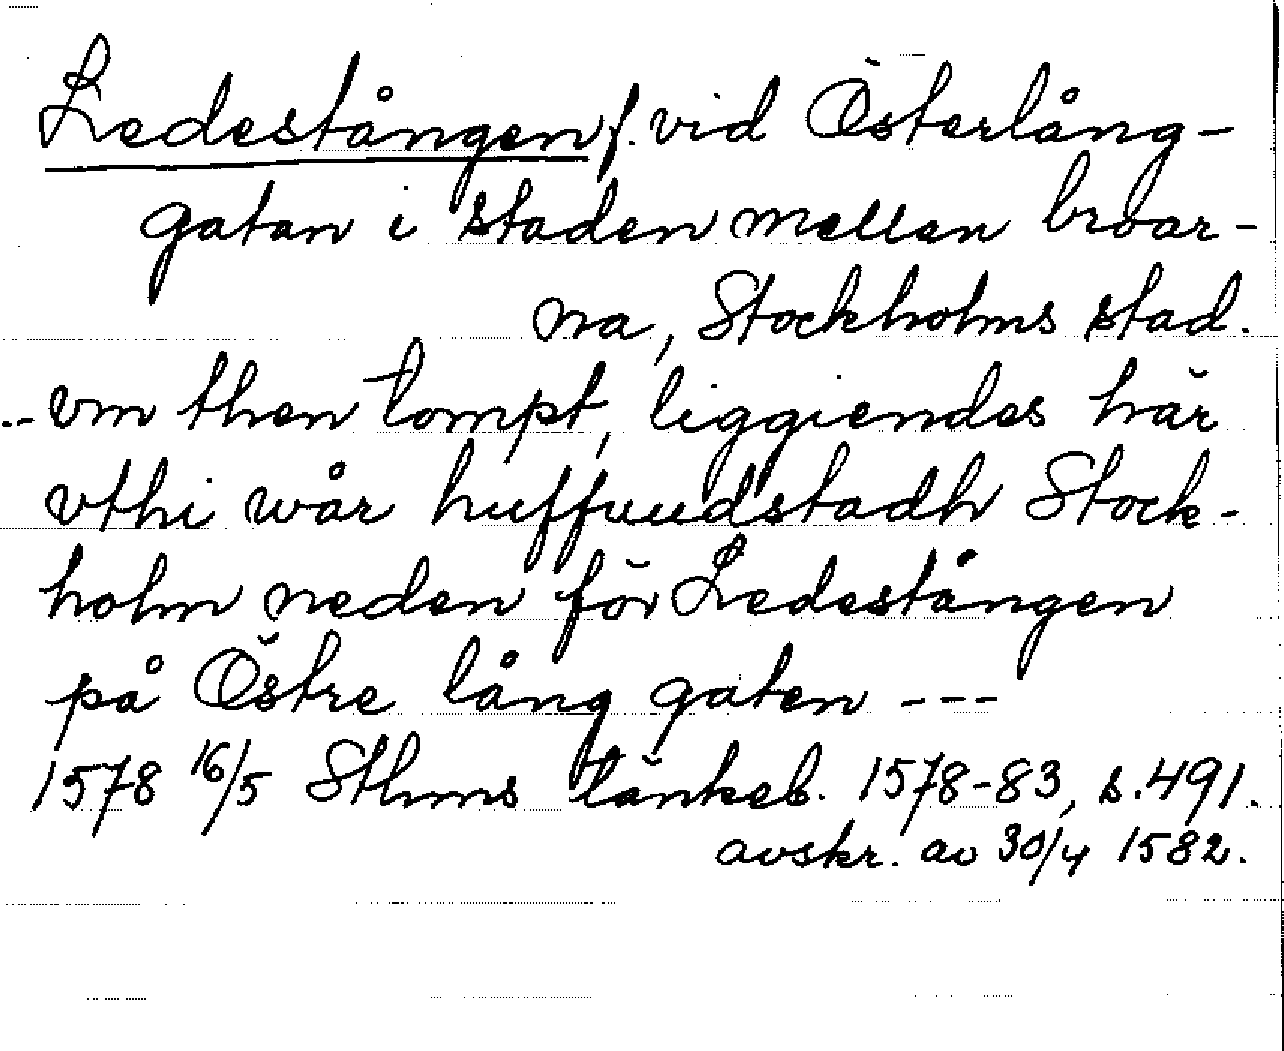 Ledestången f. vid Österlång-
gatan i staden mellan broar-
na, Stockholms stad.
..- vm then tompt, liggiendes här
vthi wår huffuudstadh Stock-
holm neden för Ledestången
på Östre lång gaten ---
1578 16/5 Sthms tänkeb. 1578-83, s. 491.
avskr. av 30/4 1582.